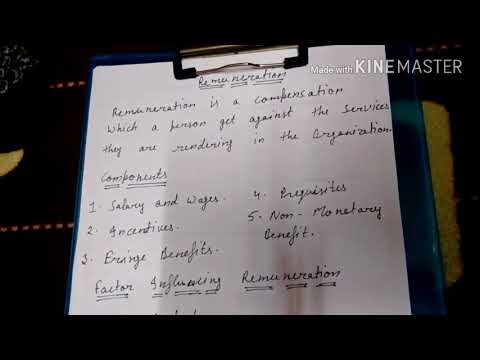 Made with KINEMASTER
Remuneration
Remuneration is a compensation
which a person get against the services
they are rendering in the Organization.
Components
1. Salary and Wages.
2. Incentives.
3. Fringe Benefits.
4. Prequisites
5. Non-Monetary
Benefit.
Factor Influencing Remuneration